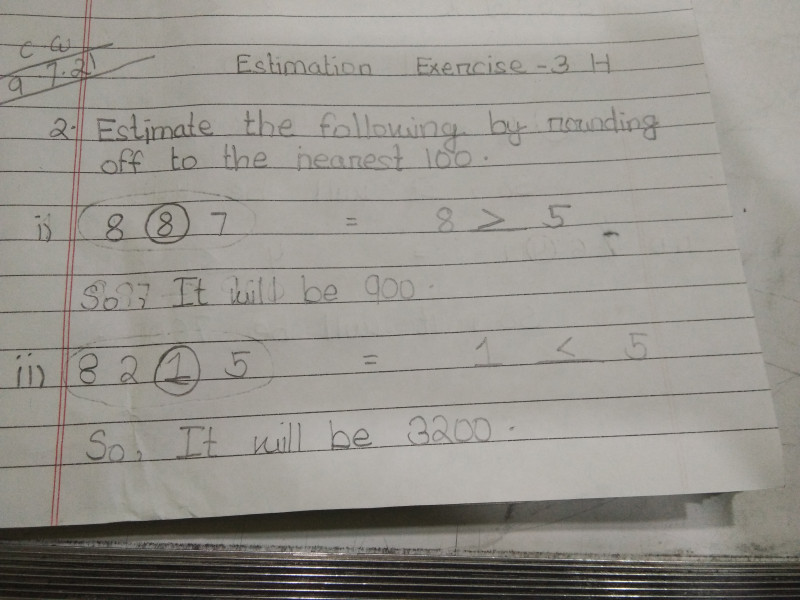 C W
9.7.21
Estimation Exercise - 3 H
2. Estimate the following by rounding
off to the nearest 100.
i) 8 8 7 = 8 > 5
So, It will be 900.
ii) 8 2 1 5 = 1 < 5
So, It will be 3200.